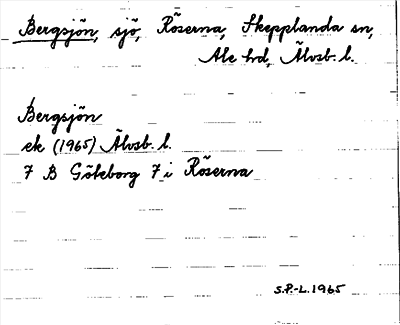 Bergsjön, sjö, Röserna, Skepplanda sn,
Ale hd, Älvsb. l.
Bergsjön
ek (1965) Älvsb. l.
7 B Göteborg 7 i Röserna
S.P.-L. 1965